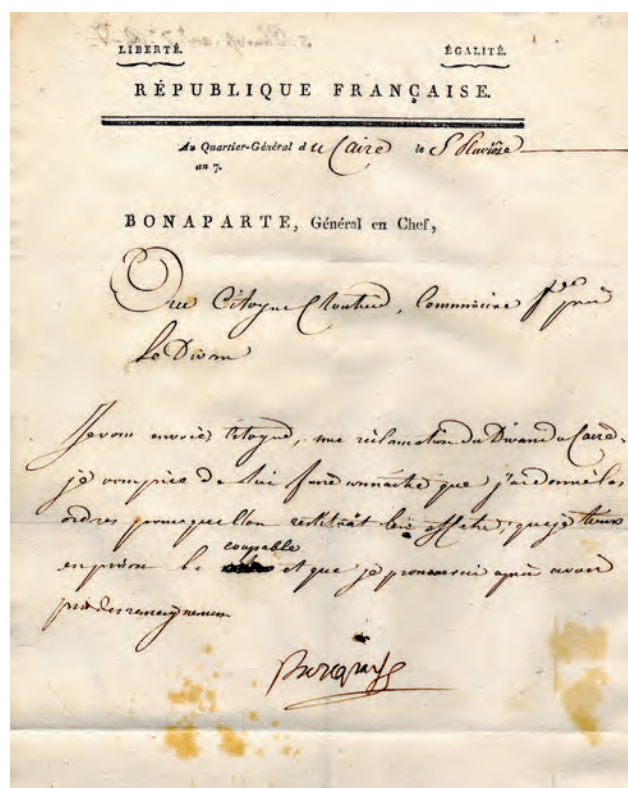 LIBERTÉ. ÉGALITÉ.
RÉPUBLIQUE FRANÇAISE.
Au Quartier-Général du Caire le 5 Pluviôse
an 7.
BONAPARTE, Général en Chef,
Au Citoyen Commissaire près
Le Divan
Je vous envoie, Citoyen, une réclamation du Divan du Caire.
je vous prie de lui faire connaître que j'ai donné les
ordres pour que l'on restituât les effets, que je tiens
en prison le coupable et que je prononcerai après avoir
pris des renseignemens
Bonaparte